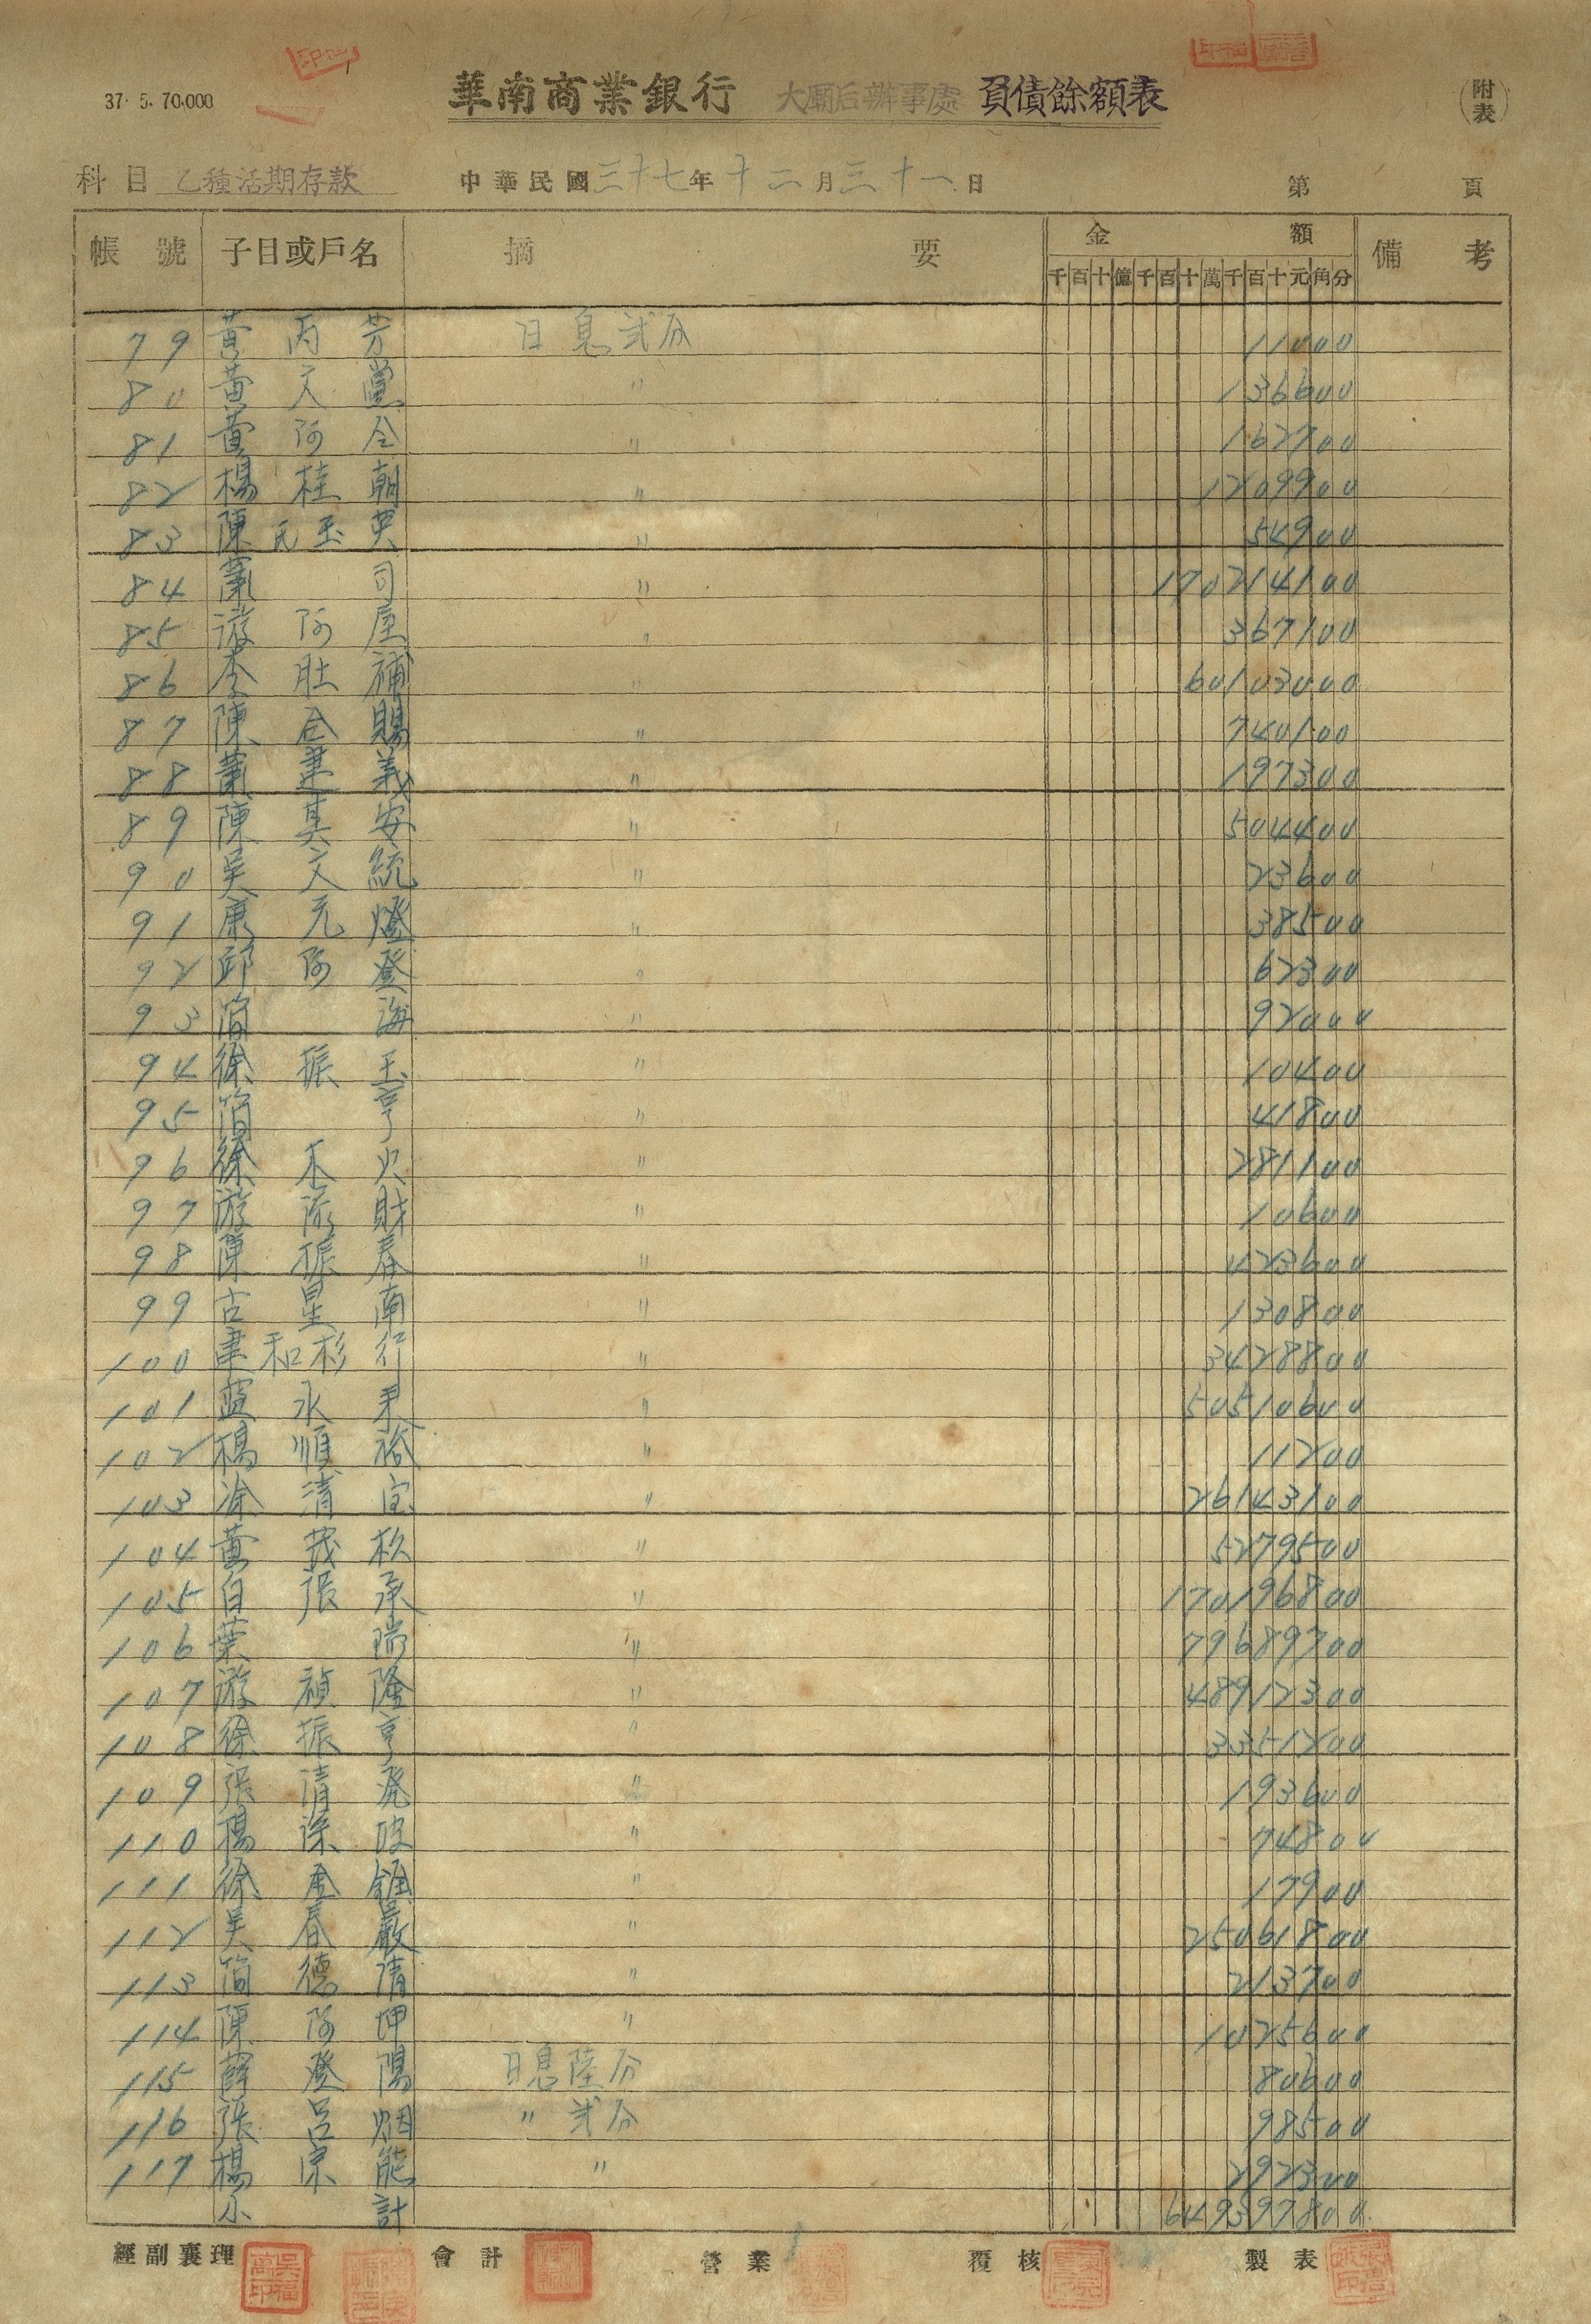 37. 5. 70.000
華南商業銀行 大廟后辦事處 負債餘額表 (附表)
科目 乙種活期存款 中華民國三十七年十二月三十一日 第 頁
帳號 子目或戶名 摘要 金額 備考
千百十億千百十萬千百十元角分
79 黃丙芳 日息弍分 11000
80 黃文黨 〃 136600
81 黃阿全 〃 162700
82 楊桂朝 〃 1209900
83 陳元玉英 〃 54900
84 蕭司 〃 170214100
85 游阿屘 〃 367100
86 李肚補 〃 60103000
87 陳金賜 〃 740100
88 蕭建義 〃 197300
89 陳其安 〃 504400
90 吳文統 〃 23600
91 康元燈 〃 38500
92 邱阿登 〃 62300
93 簡海 〃 92000
94 徐振玉 〃 10400
95 簡亨 〃 41800
96 徐木火 〃 281100
97 游添財 〃 10600
98 陳振春 〃 423600
99 古星南 〃 130800
100 建和杉行 〃 3428800
101 藍永 〃 50510600
102 楊順裕 〃 11200
103 涂清 〃 26143100
104 黃茂松 〃 5279500
105 白張承 〃 170196800
106 葉瑞 〃 79689700
107 游禎隆 〃 48912300
108 徐振亨 〃 3351200
109 張清発 〃 193600
110 楊深波 〃 74800
111 徐金 〃 17900
112 吳春嚴 〃 25061800
113 簡德清 〃 213700
114 陳阿坤 〃 1025600
115 薛登陽 日息陸分 80600
116 張呂烟 〃 弍分 98500
117 楊宗能 〃 292300
小計 649397800
經副襄理 會計 營業 覆核 製表